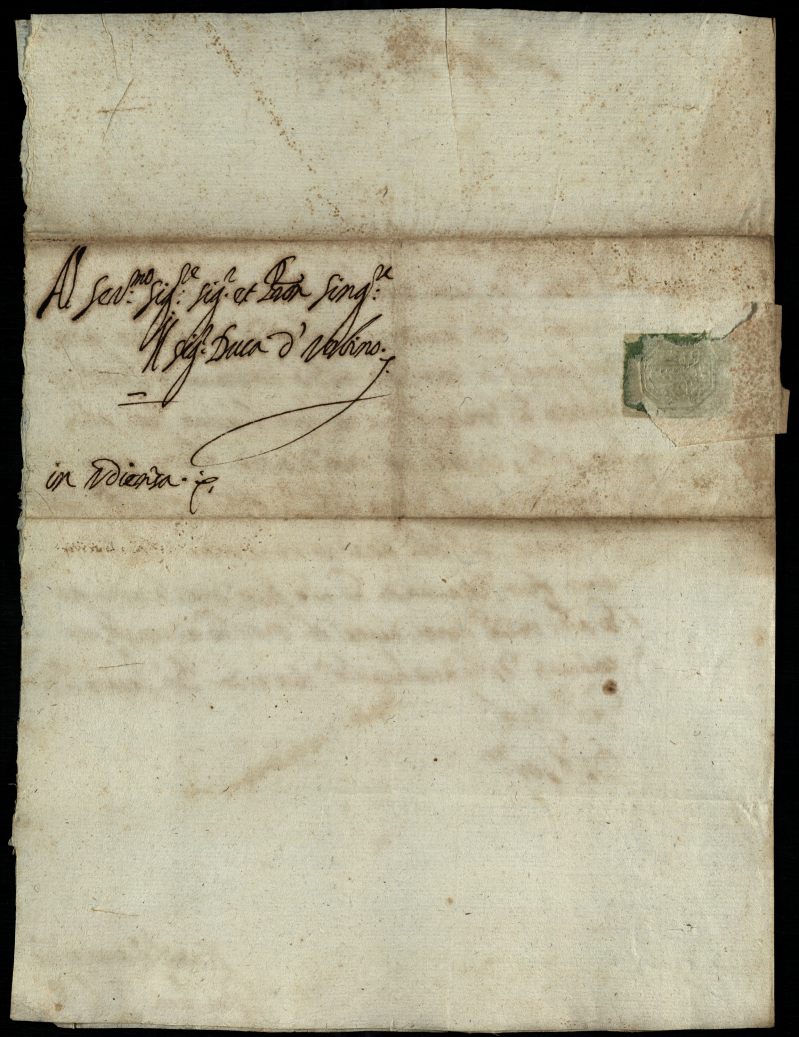 Al Ser.mo Sig.re Sig.r et Pron Sing.re
Il Sig.r Duca d' Urbino.
in Udienza.